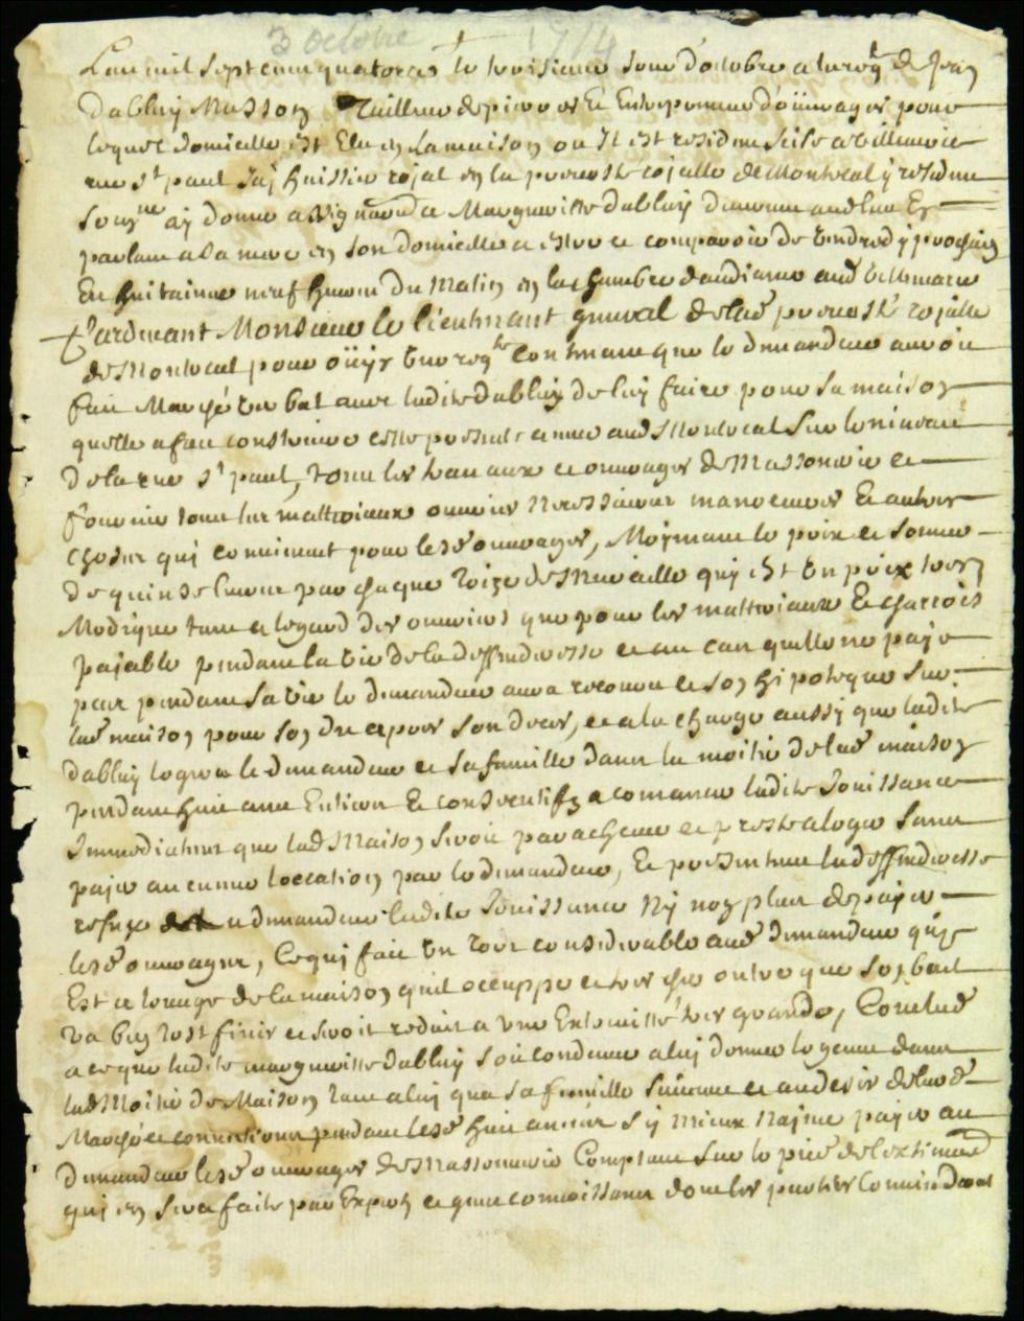 3 octobre 1714
Lan mil sept cens quatorze le troisieme Jour d'octobre a la reqte de Jean
Dabluy Masson Tailleur de pierres Et Entrepreneur d'oüurages pour
lequel domicille est Eleu en La maison ou Il est resident scise a Villemarie
rue St paul Jaj huissier rojal en la preuosté rojalle de Montreal y resident
Sousne aij donné assignaon a Margueritte dabluy veuue Et
parlant a sa mere en son domicille a estre et comparoir de Vendredy prochain
En huitaine neuf heures du Matin en la chambre d'audiance aud Villemarie
Pardeuant Monsieur le lieutenant gnneral de lad preuosté rojalle
de Montreal pour oüyr Une reqte Contenant que le demandeur auroit
fait Marché Verbal auec ladite dabluy de luy faire pour sa maison
quelle a fait construire cette presente année aud Montreal Sur le niueau
de la rue St paul, tous les trauaux et ouurages de Massonnerie et
fournir tous les mattreiaux ouuriers Necessaires manoeuures Et autres
choses qui conuiennent pour lesd ouurages, Moyennant le prix et somme
de quinse liures par chaque Toize de Muraille qui Est Un prix tres
Modique tant a legard des ouuriers que pour les mattreiaux Et charrois
pajable pendant la vie de la deffenderesse et au cas quelle ne paje
pas pendant sa vie le demandeur aura recours et son hipoteque sur
lad maison pour son du apres son deces, et a la charge aussy que ladite
dabluy logera le demandeur et sa famille dans la moitié de lad maison
pendant huit ans Entiers Et consecutifs a comancer ladite Jouissance
Immediatemt que lad Maison seroit paracheuée et preste a loger sans
pajer aucunne loccation par le demandeur, Et presentemt la deffenderesse
refuse au demandeur ladite Jouissance Ny non plus de pajer
lesd ouurages, Ce qui fait Un Tort considerable aud demandeur qui
Est a louage de la maison quil occuppe et tres cher outre que son bail
Va bien tost finir et seroit reduit a Une Extremitté tres grande, Conclud
a ce que ladite margueritte dabluy soit condamnée a luy donner logemt dans
lad Moitié de Maison tant a luy que sa famille suiuant et au desir de lad
Marché et conuentions pendant lesd huit années sy Mieux Najme pajer au
demandeur lesd ouurages de Massonnerie Comptant sur le pied de l'estimaon
qui en sera faite par Expers et gens connoissans dont les parties Conuiendront